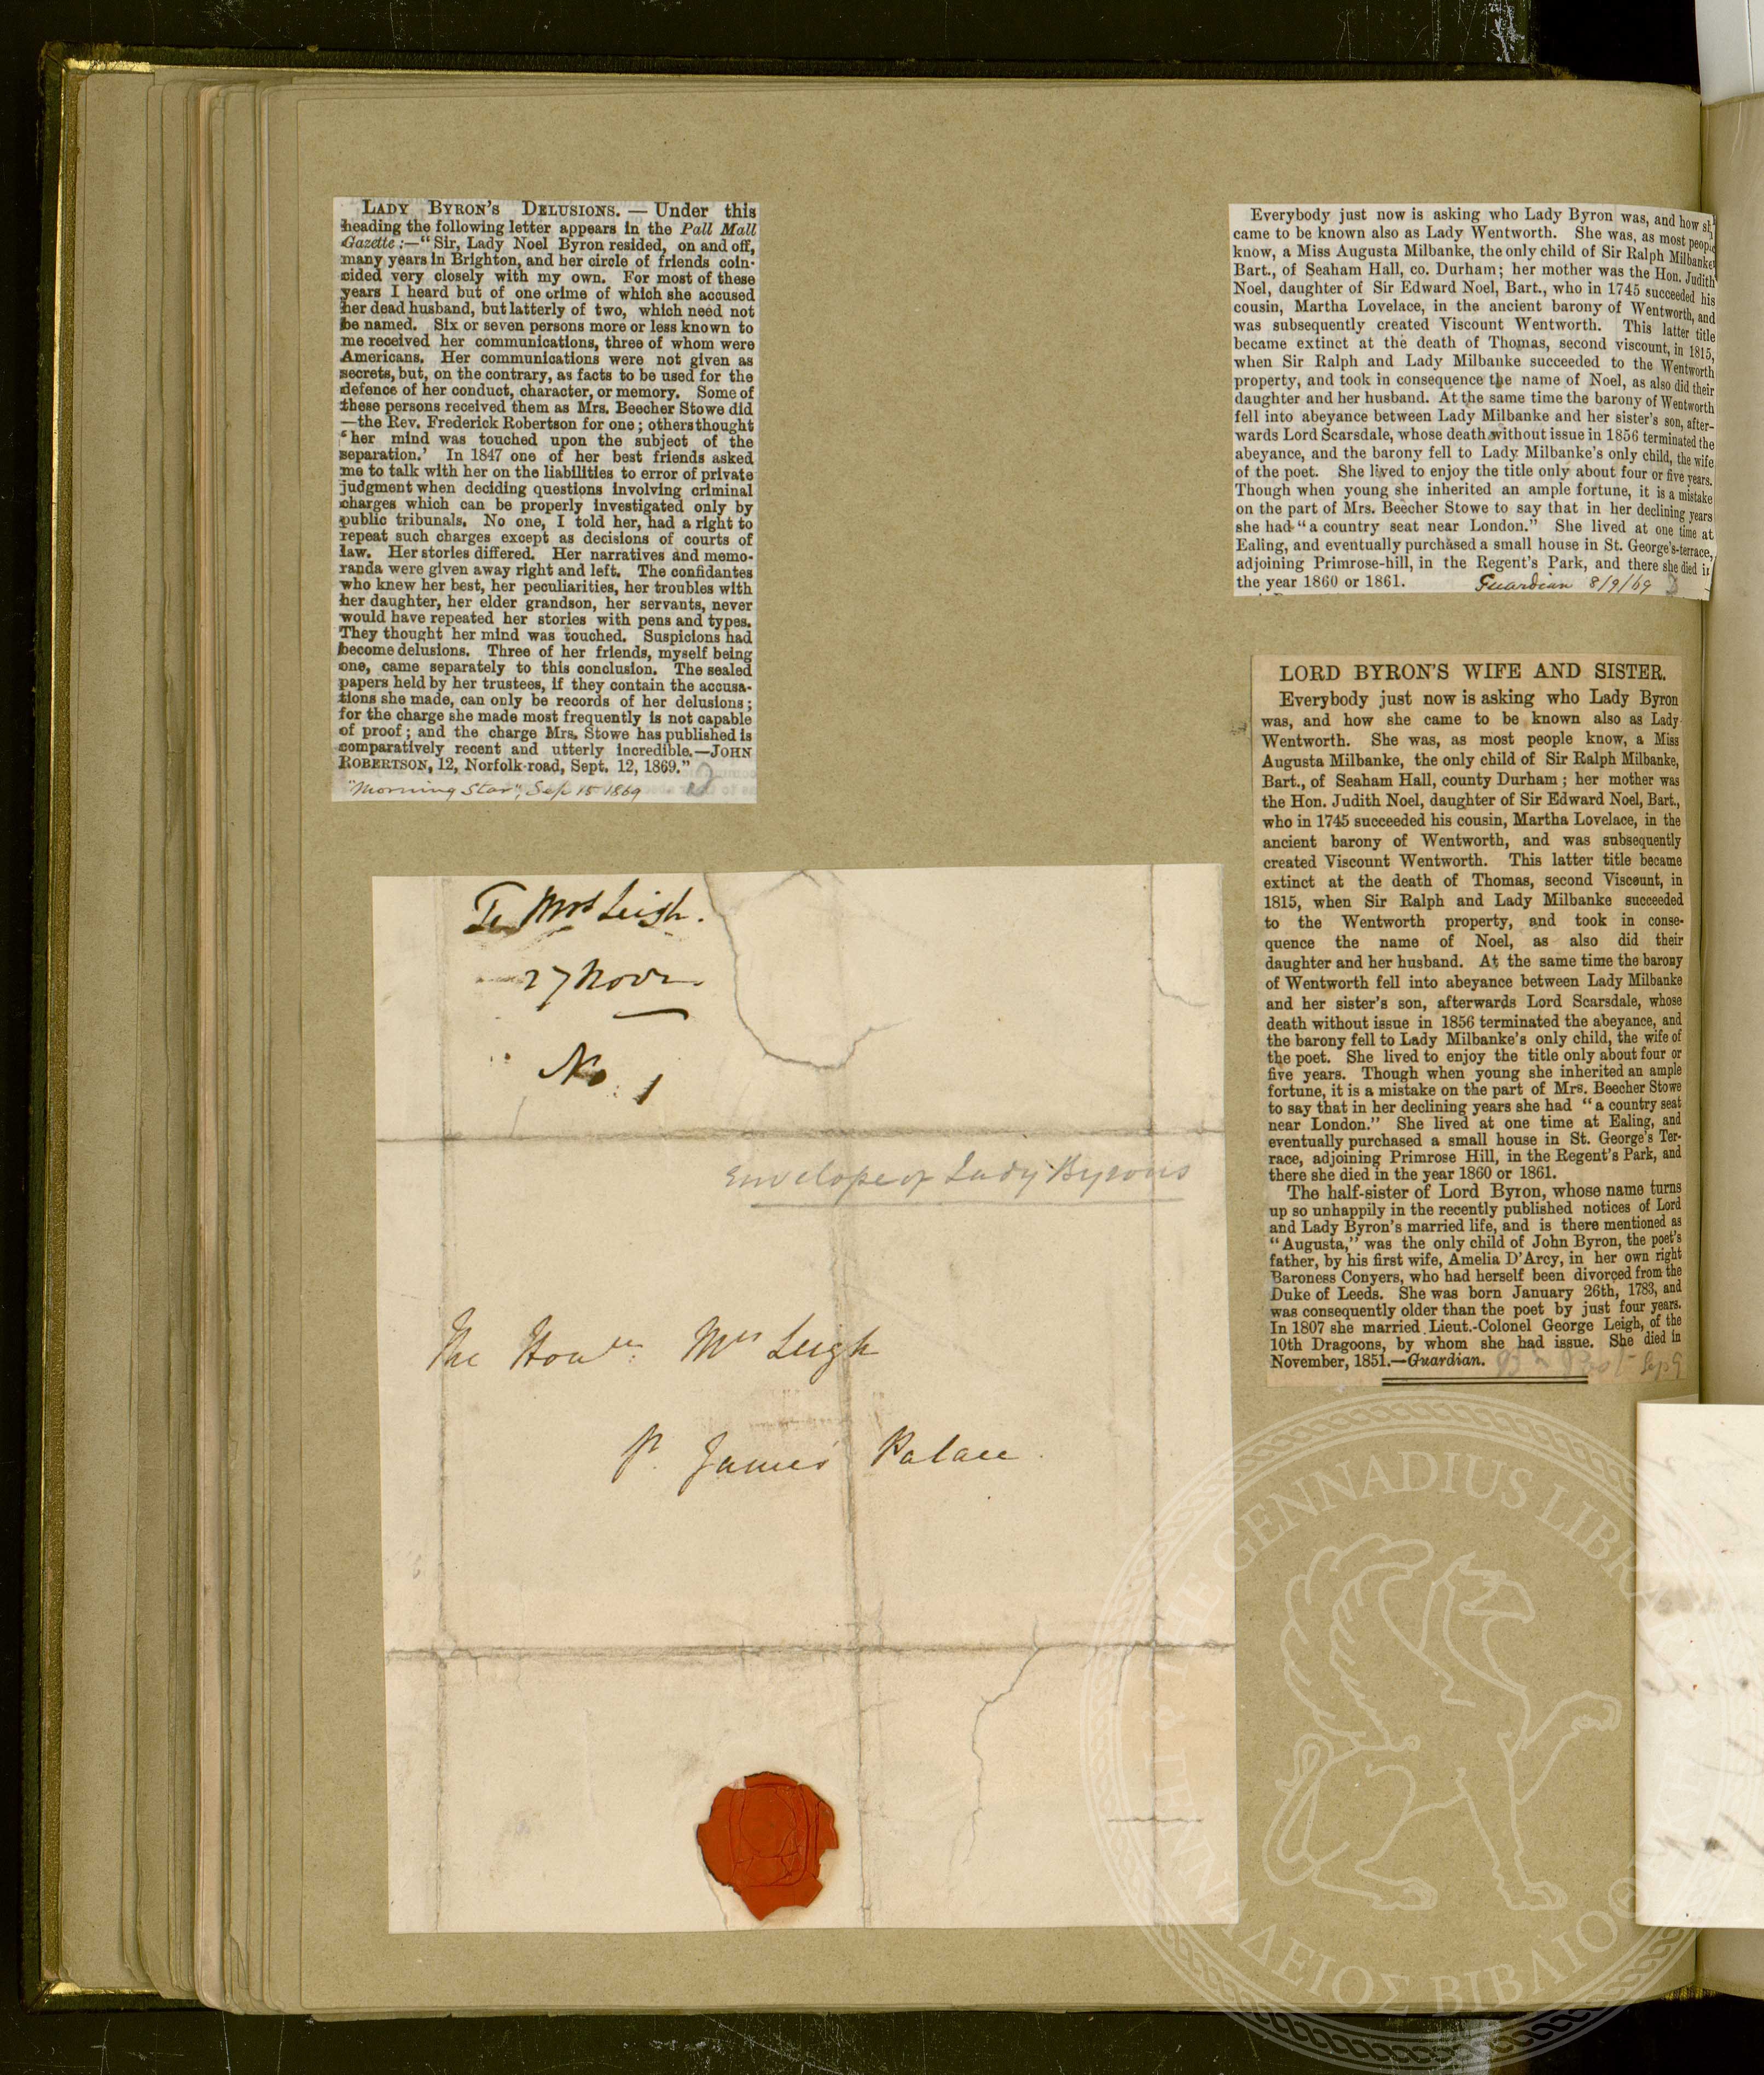 LADY BYRON'S DELUSIONS. — Under this
heading the following letter appears in the Pall Mall
Gazette:—"Sir, Lady Noel Byron resided, on and off,
many years in Brighton, and her circle of friends coin-
cided very closely with my own. For most of these
years I heard but of one crime of which she accused
her dead husband, but latterly of two, which need not
be named. Six or seven persons more or less known to
me received her communications, three of whom were
Americans. Her communications were not given as
secrets, but, on the contrary, as facts to be used for the
defence of her conduct, character, or memory. Some of
these persons received them as Mrs. Beecher Stowe did
—the Rev. Frederick Robertson for one; others thought
'her mind was touched upon the subject of the
separation.' In 1847 one of her best friends asked
me to talk with her on the liabilities to error of private
judgment when deciding questions involving criminal
charges which can be properly investigated only by
public tribunals. No one, I told her, had a right to
repeat such charges except as decisions of courts of
law. Her stories differed. Her narratives and memo-
randa were given away right and left. The confidantes
who knew her best, her peculiarities, her troubles with
her daughter, her elder grandson, her servants, never
would have repeated her stories with pens and types.
They thought her mind was touched. Suspicions had
become delusions. Three of her friends, myself being
one, came separately to this conclusion. The sealed
papers held by her trustees, if they contain the accusa-
tions she made, can only be records of her delusions;
for the charge she made most frequently is not capable
of proof; and the charge Mrs. Stowe has published is
comparatively recent and utterly incredible.—JOHN
ROBERTSON, 12, Norfolk-road, Sept. 12, 1869."
"Morning Star", Sep 15 1869
To Mrs Leigh.
27 Novr
No. 1
Envelope of Lady Byrons
The Honble: Mrs Leigh
St. James' Palace.
Everybody just now is asking who Lady Byron was, and how sh
came to be known also as Lady Wentworth. She was, as most peopl
know, a Miss Augusta Milbanke, the only child of Sir Ralph Milbanke
Bart., of Seaham Hall, co. Durham; her mother was the Hon. Judith
Noel, daughter of Sir Edward Noel, Bart., who in 1745 succeeded his
cousin, Martha Lovelace, in the ancient barony of Wentworth, and
was subsequently created Viscount Wentworth. This latter title
became extinct at the death of Thomas, second viscount, in 1815,
when Sir Ralph and Lady Milbanke succeeded to the Wentworth
property, and took in consequence the name of Noel, as also did their
daughter and her husband. At the same time the barony of Wentworth
fell into abeyance between Lady Milbanke and her sister's son, after-
wards Lord Scarsdale, whose death without issue in 1856 terminated the
abeyance, and the barony fell to Lady Milbanke's only child, the wife
of the poet. She lived to enjoy the title only about four or five years.
Though when young she inherited an ample fortune, it is a mistake
on the part of Mrs. Beecher Stowe to say that in her declining years
she had "a country seat near London." She lived at one time at
Ealing, and eventually purchased a small house in St. George's-terrace,
adjoining Primrose-hill, in the Regent's Park, and there she died in
the year 1860 or 1861. Guardian 8/9/69
LORD BYRON'S WIFE AND SISTER.
Everybody just now is asking who Lady Byron
was, and how she came to be known also as Lady
Wentworth. She was, as most people know, a Miss
Augusta Milbanke, the only child of Sir Ralph Milbanke,
Bart., of Seaham Hall, county Durham; her mother was
the Hon. Judith Noel, daughter of Sir Edward Noel, Bart.,
who in 1745 succeeded his cousin, Martha Lovelace, in the
ancient barony of Wentworth, and was subsequently
created Viscount Wentworth. This latter title became
extinct at the death of Thomas, second Viscount, in
1815, when Sir Ralph and Lady Milbanke succeeded
to the Wentworth property, and took in conse-
quence the name of Noel, as also did their
daughter and her husband. At the same time the barony
of Wentworth fell into abeyance between Lady Milbanke
and her sister's son, afterwards Lord Scarsdale, whose
death without issue in 1856 terminated the abeyance, and
the barony fell to Lady Milbanke's only child, the wife of
the poet. She lived to enjoy the title only about four or
five years. Though when young she inherited an ample
fortune, it is a mistake on the part of Mrs. Beecher Stowe
to say that in her declining years she had "a country seat
near London." She lived at one time at Ealing, and
eventually purchased a small house in St. George's Ter-
race, adjoining Primrose Hill, in the Regent's Park, and
there she died in the year 1860 or 1861.
The half-sister of Lord Byron, whose name turns
up so unhappily in the recently published notices of Lord
and Lady Byron's married life, and is there mentioned as
"Augusta," was the only child of John Byron, the poet's
father, by his first wife, Amelia D'Arcy, in her own right
Baroness Conyers, who had herself been divorced from the
Duke of Leeds. She was born January 26th, 1783, and
was consequently older than the poet by just four years.
In 1807 she married Lieut.-Colonel George Leigh, of the
10th Dragoons, by whom she had issue. She died in
November, 1851.—Guardian. Post Sep 9
THE GENNADIUS LIBRA
ΓΕΝΝΑΔΕΙΟΣ ΒΙΒΛΙΟΘ